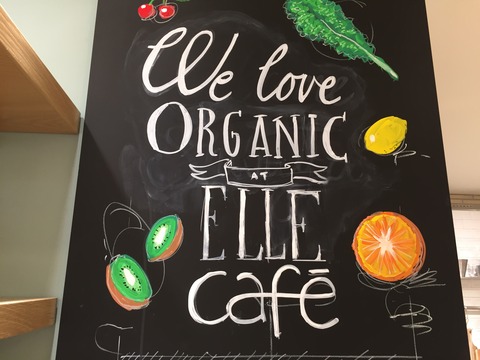 We love
ORGANIC
AT
ELLE
café